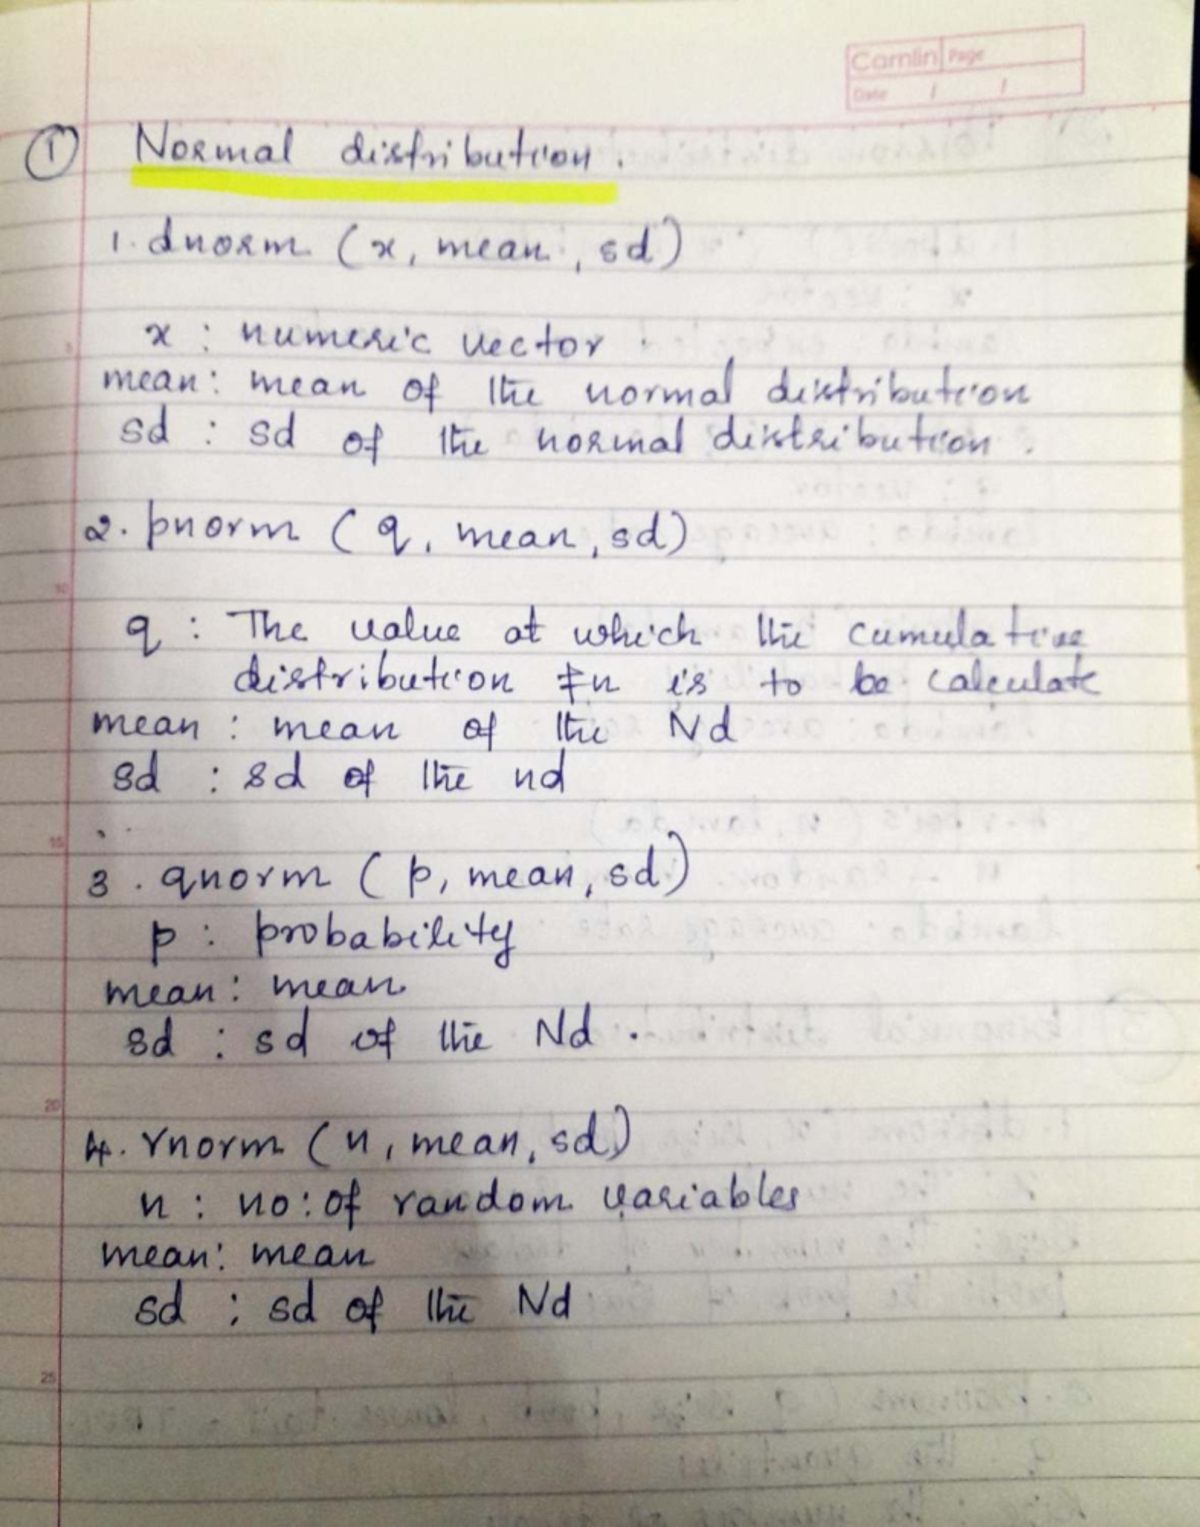 Camlin Page
Date / /
① Normal distribution.
1. dnorm (x, mean, sd)
x : numeric vector
5
mean: mean of the normal distribution
sd : sd of the normal distribution.
2. pnorm (q, mean, sd)
10
q : The value at which the cumulative
distribution Fn is to be calculate
mean : mean of the Nd
sd : sd of the nd
15
3. qnorm (p, mean, sd)
p : probability
mean: mean
sd : sd of the Nd.
20
4. rnorm (n, mean, sd)
n : no: of random variables
mean: mean
sd : sd of the Nd
25